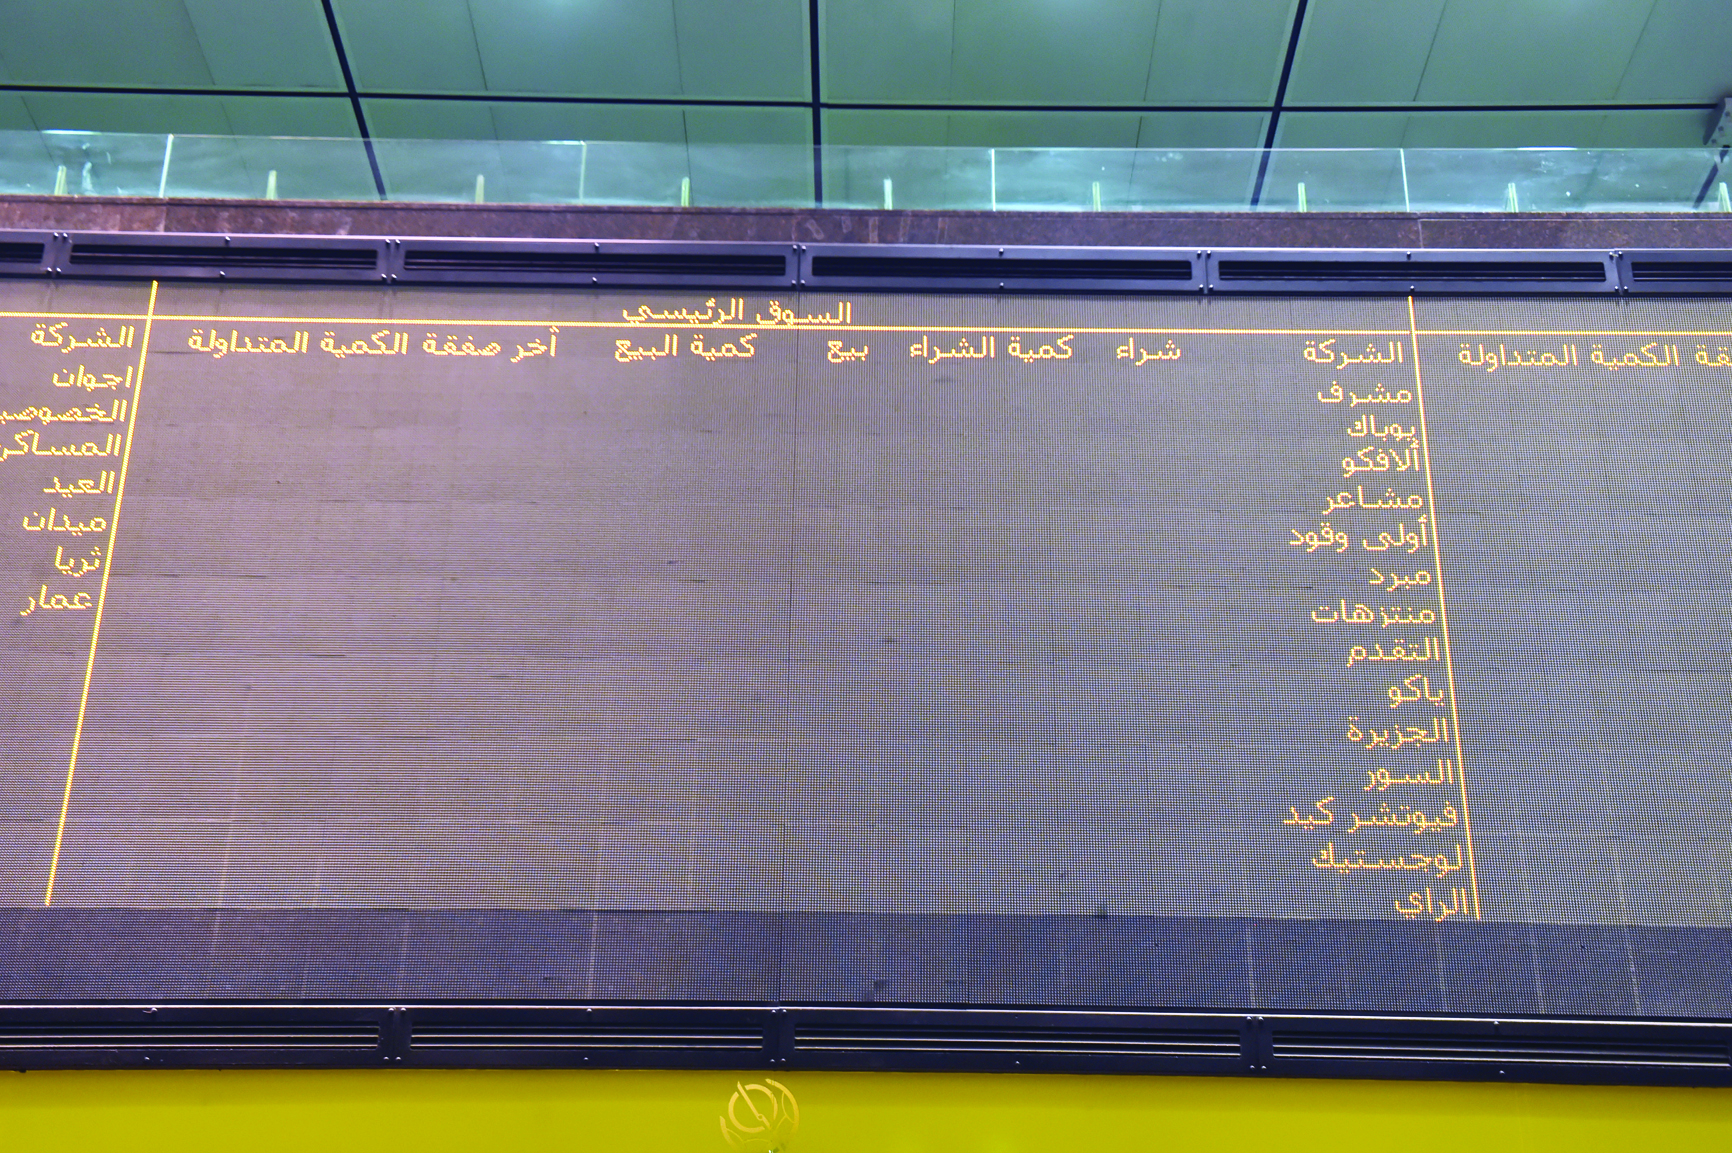 السوق الرئيسي
قة الكمية المتداولة
الشركة شراء كمية الشراء بيع كمية البيع أخر صفقة الكمية المتداولة
مشرف
يوباك
ألافكو
مشاعر
أولى وقود
مبرد
منتزهات
التقدم
ياكو
الجزيرة
السور
فيوتشر كيد
لوجستيك
الراي
الشركة
اجوان
الخصوصي
المساكن
العيد
ميدان
ثريا
عمار